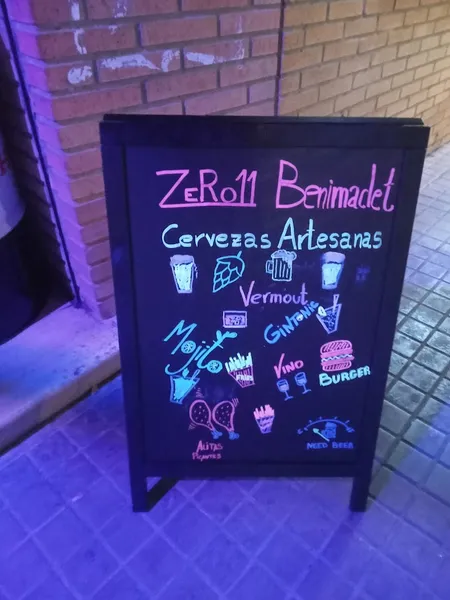 ZeRo11 Benimaclet
Cervezas Artesanas
Vermout
Gintonic
Mojito
Vino
BURGER
ALITAS
Picantes
NEED BEER